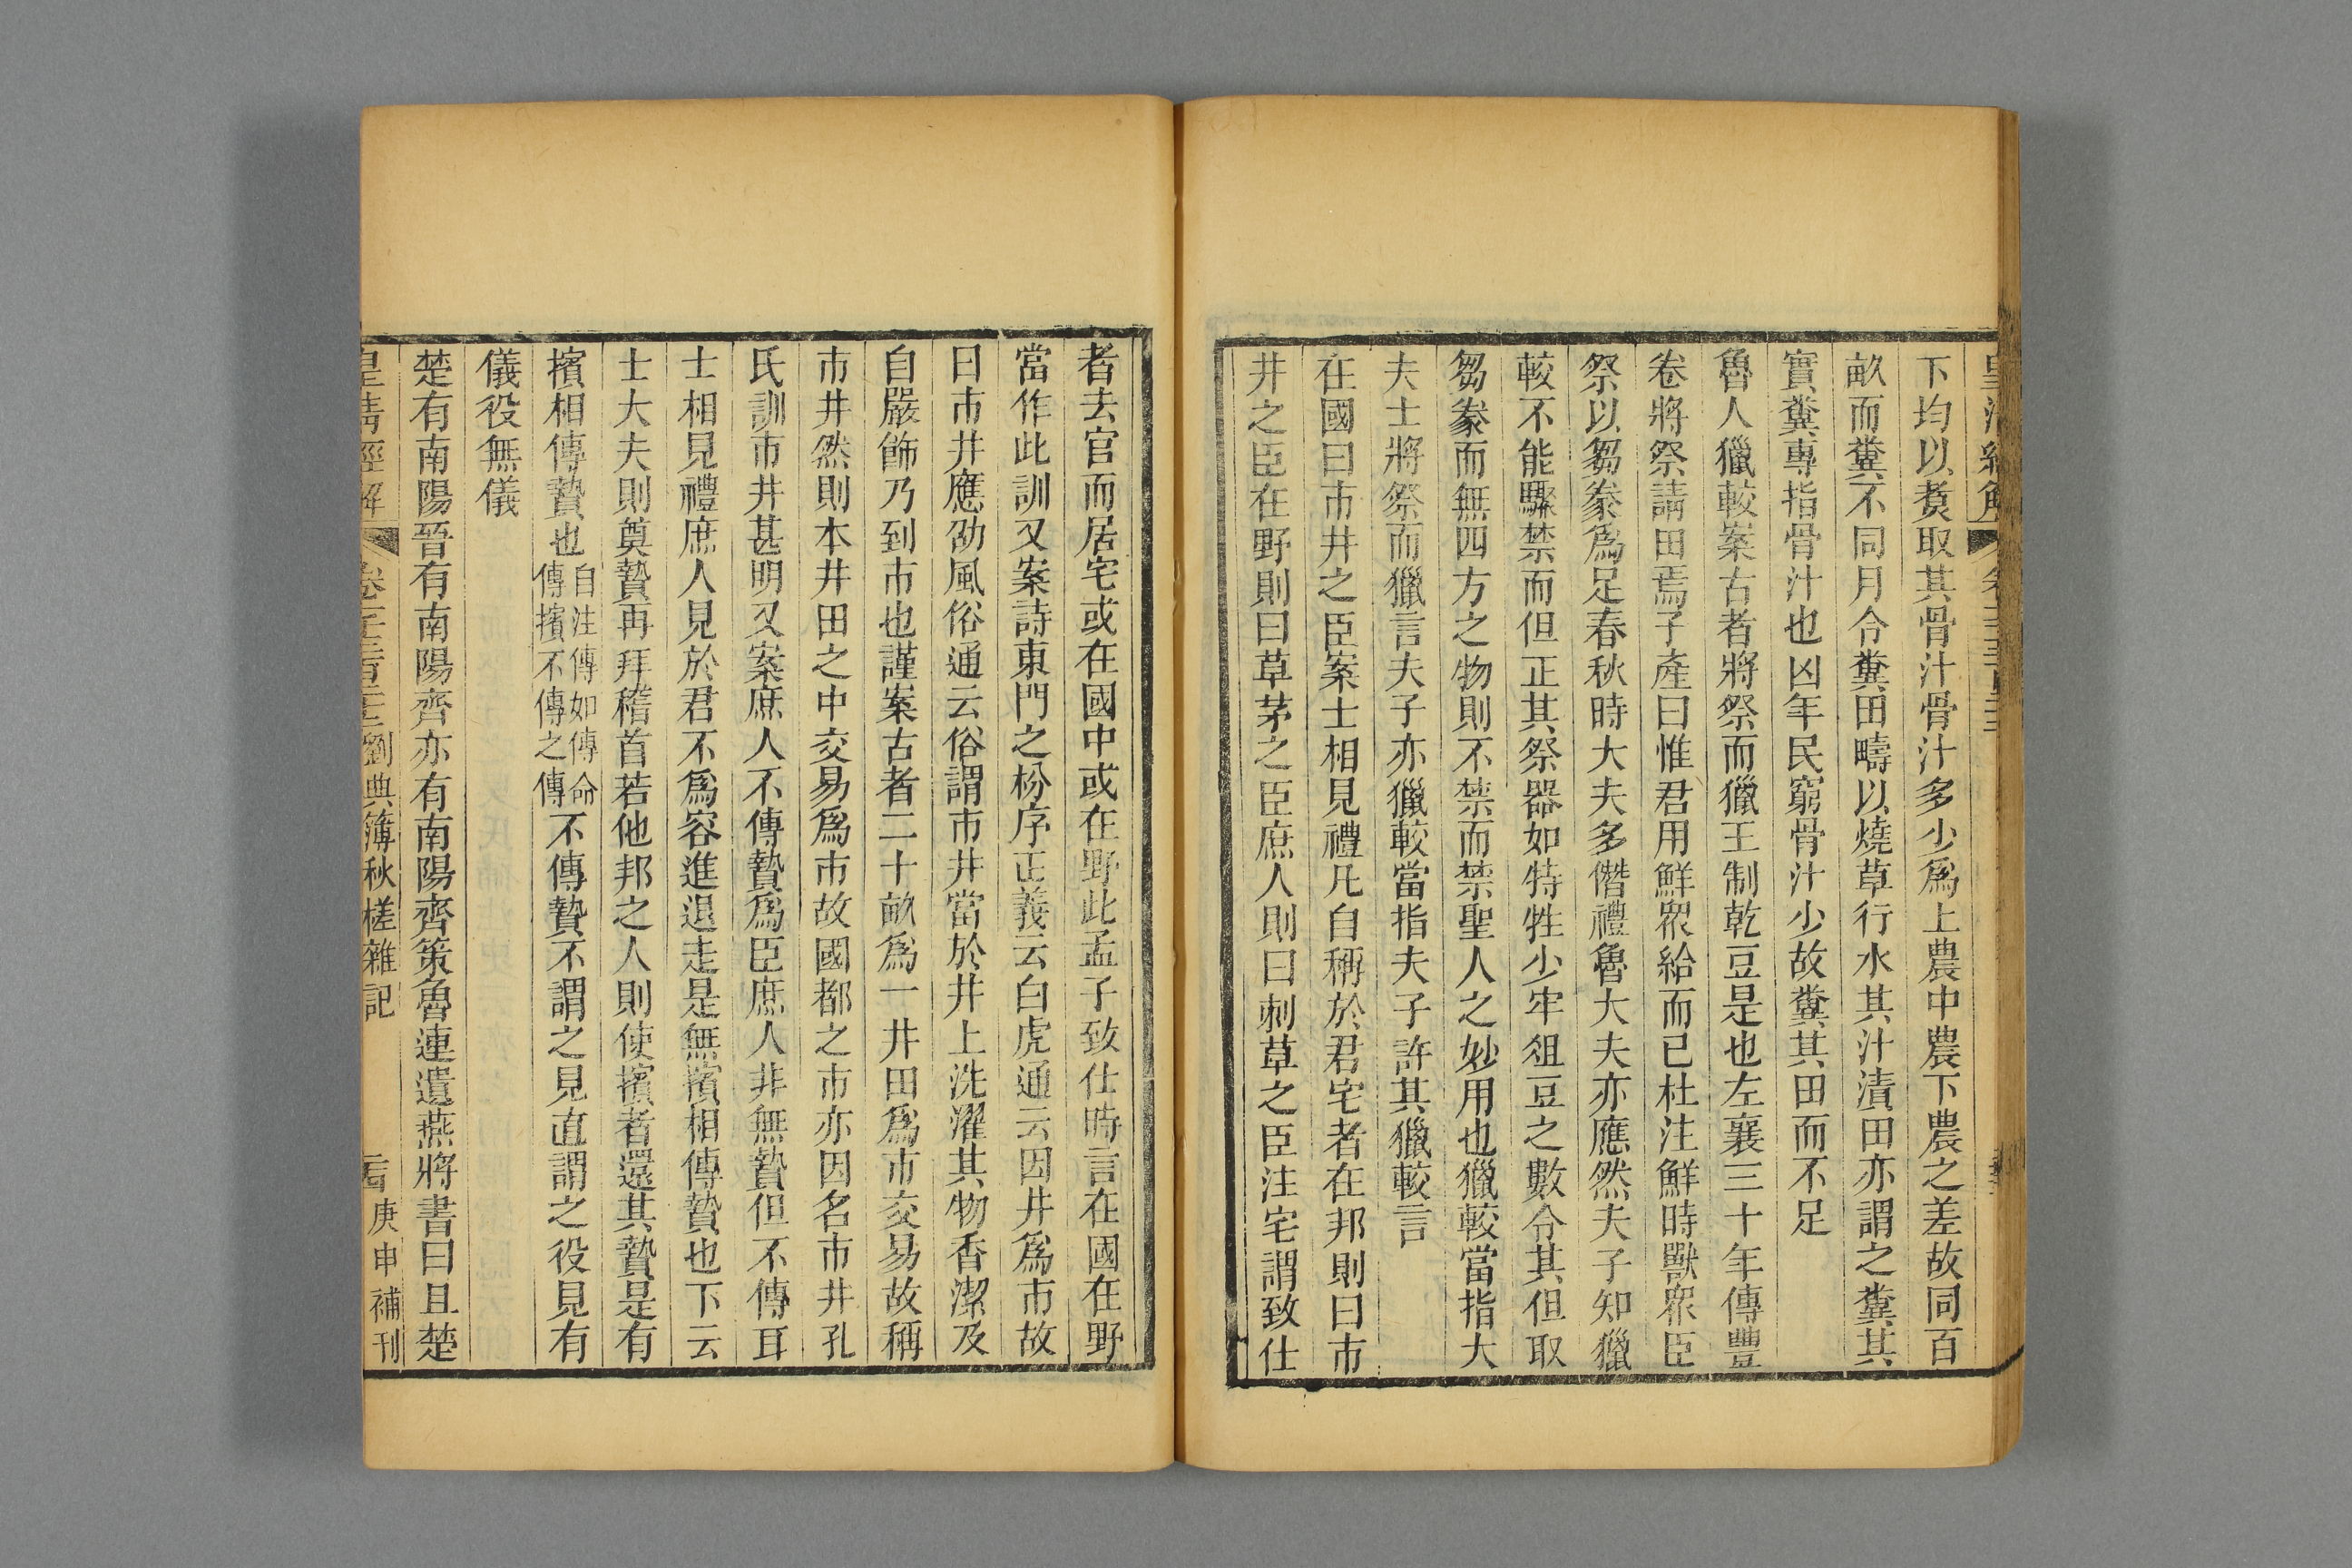 下均以煑取其骨汁骨汁多少爲上農中農下農之差故同百
畝而糞不同月令糞田疇以燒草行水其汁漬田亦謂之糞其
實糞專指骨汁也凶年民窮骨汁少故糞其田而不足
魯人獵較案古者將祭而獵王制乾豆是也左襄三十年傳豐
卷將祭請田焉子產曰惟君用鮮眾給而已杜注鮮時獸眾臣
祭以芻豢爲足春秋時大夫多僭禮魯大夫亦應然夫子知獵
較不能驟禁而但正其祭器如特牲少牢俎豆之數令其但取
芻豢而無四方之物則不禁而禁聖人之妙用也獵較當指大
夫士將祭而獵言夫子亦獵較當指夫子許其獵較言
在國曰市井之臣案士相見禮凡自稱於君宅者在邦則曰市
井之臣在野則曰草茅之臣庶人則曰刺草之臣注宅謂致仕
者去官而居宅或在國中或在野此孟子致仕時言在國在野
當作此訓又案詩東門之枌序正義云白虎通云因井爲市故
曰市井應劭風俗通云俗謂市井當於井上洗濯其物香潔及
自嚴飾乃到市也謹案古者二十畝爲一井田爲市交易故稱
市井然則本井田之中交易爲市故國都之市亦因名市井孔
氏訓市井甚明又案庶人不傳贄爲臣庶人非無贄但不傳耳
士相見禮庶人見於君不爲容進退走是無擯相傳贄也下云
士大夫則奠贄再拜稽首若他邦之人則使擯者還其贄是有
擯相傳贄也自注傳如傳命傳擯不傳之傳不傳贄不謂之見直謂之役見有
儀役無儀
楚有南陽晉有南陽齊亦有南陽齊策魯連遺燕將書曰且楚
皇清經解 劉典簿秋槎雜記 庚申補刊